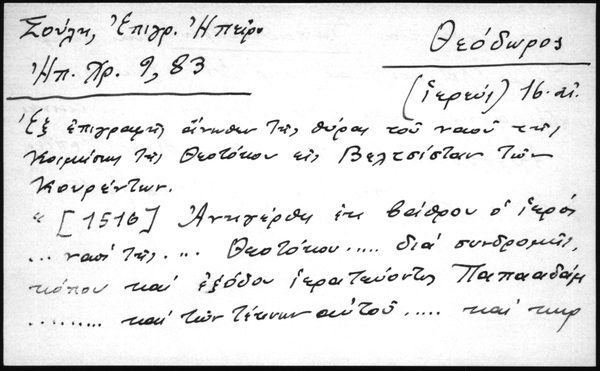 Σούλη, Ἐπιγρ. Ἠπείρου
Ἠπ. Χρ. 9, 83
Θεόδωρος
(ἱερεύς) 16. αἰ.
Ἐξ ἐπιγραφῆς ἄνωθεν τῆς θύρας τοῦ ναοῦ τῆς
Κοιμήσεως τῆς Θεοτόκου εἰς Βελτσίσταν τῶν
Κουρέντων.
"[1516] Ἀνηγέρθη ἐκ βάθρου ὁ ἱερός
... ναός τῆς ... Θεοτόκου ..... διά συνδρομῆς,
κόπου καί ἐξόδου ἱερατεύοντος Παπααδάμ
......... καί τῶν τέκνων αὐτοῦ ..... καί κυρ